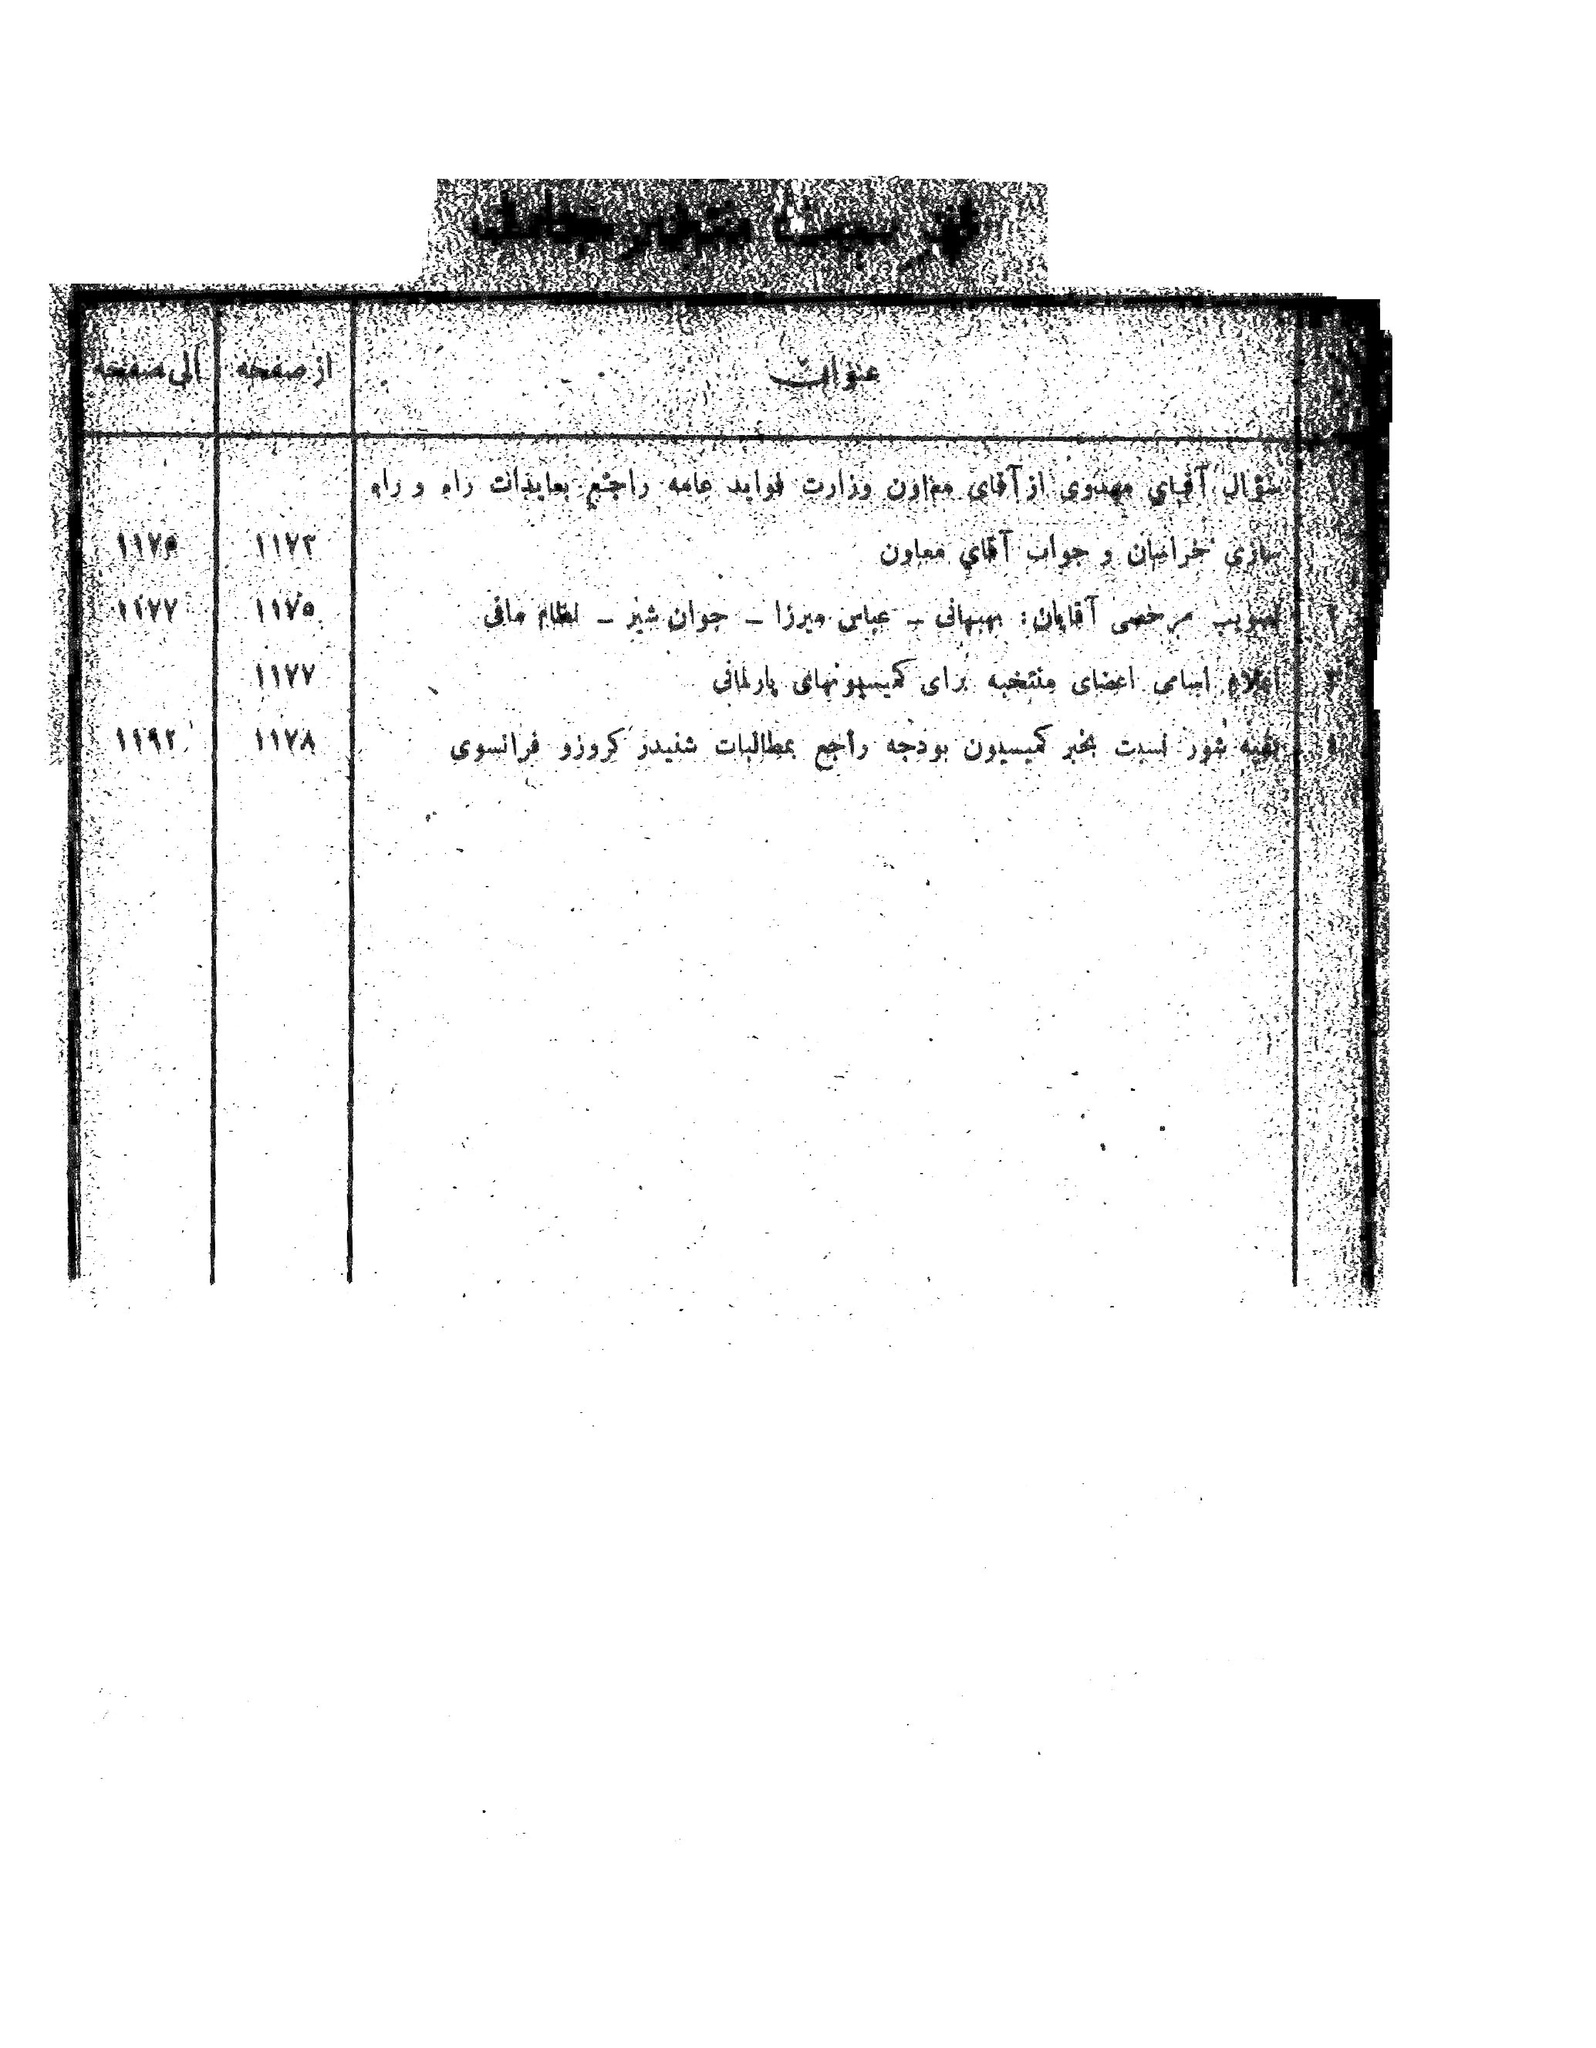 عنوان از صفحه الی صفحه
سؤال آقای مهدوی از آقای معاون وزارت فواید عامه راجع بعایدات راه و راه
سازی خراسان و جواب آقای معاون ۱۱۷۳ ۱۱۷۵
۲ تصویب مرخصی آقایان: بهبهانی - عباس میرزا - جوان شیر - نظام مافی ۱۱۷۵ ۱۱۷۷
۳ اعلام اسامی اعضای منتخبه برای کمیسیونهای پارلمانی ۱۱۷۷
بقیه شور نسبت بخبر کمیسیون بودجه راجع بمطالبات شنیدر کروزو فرانسوی ۱۱۷۸ ۱۱۹۲